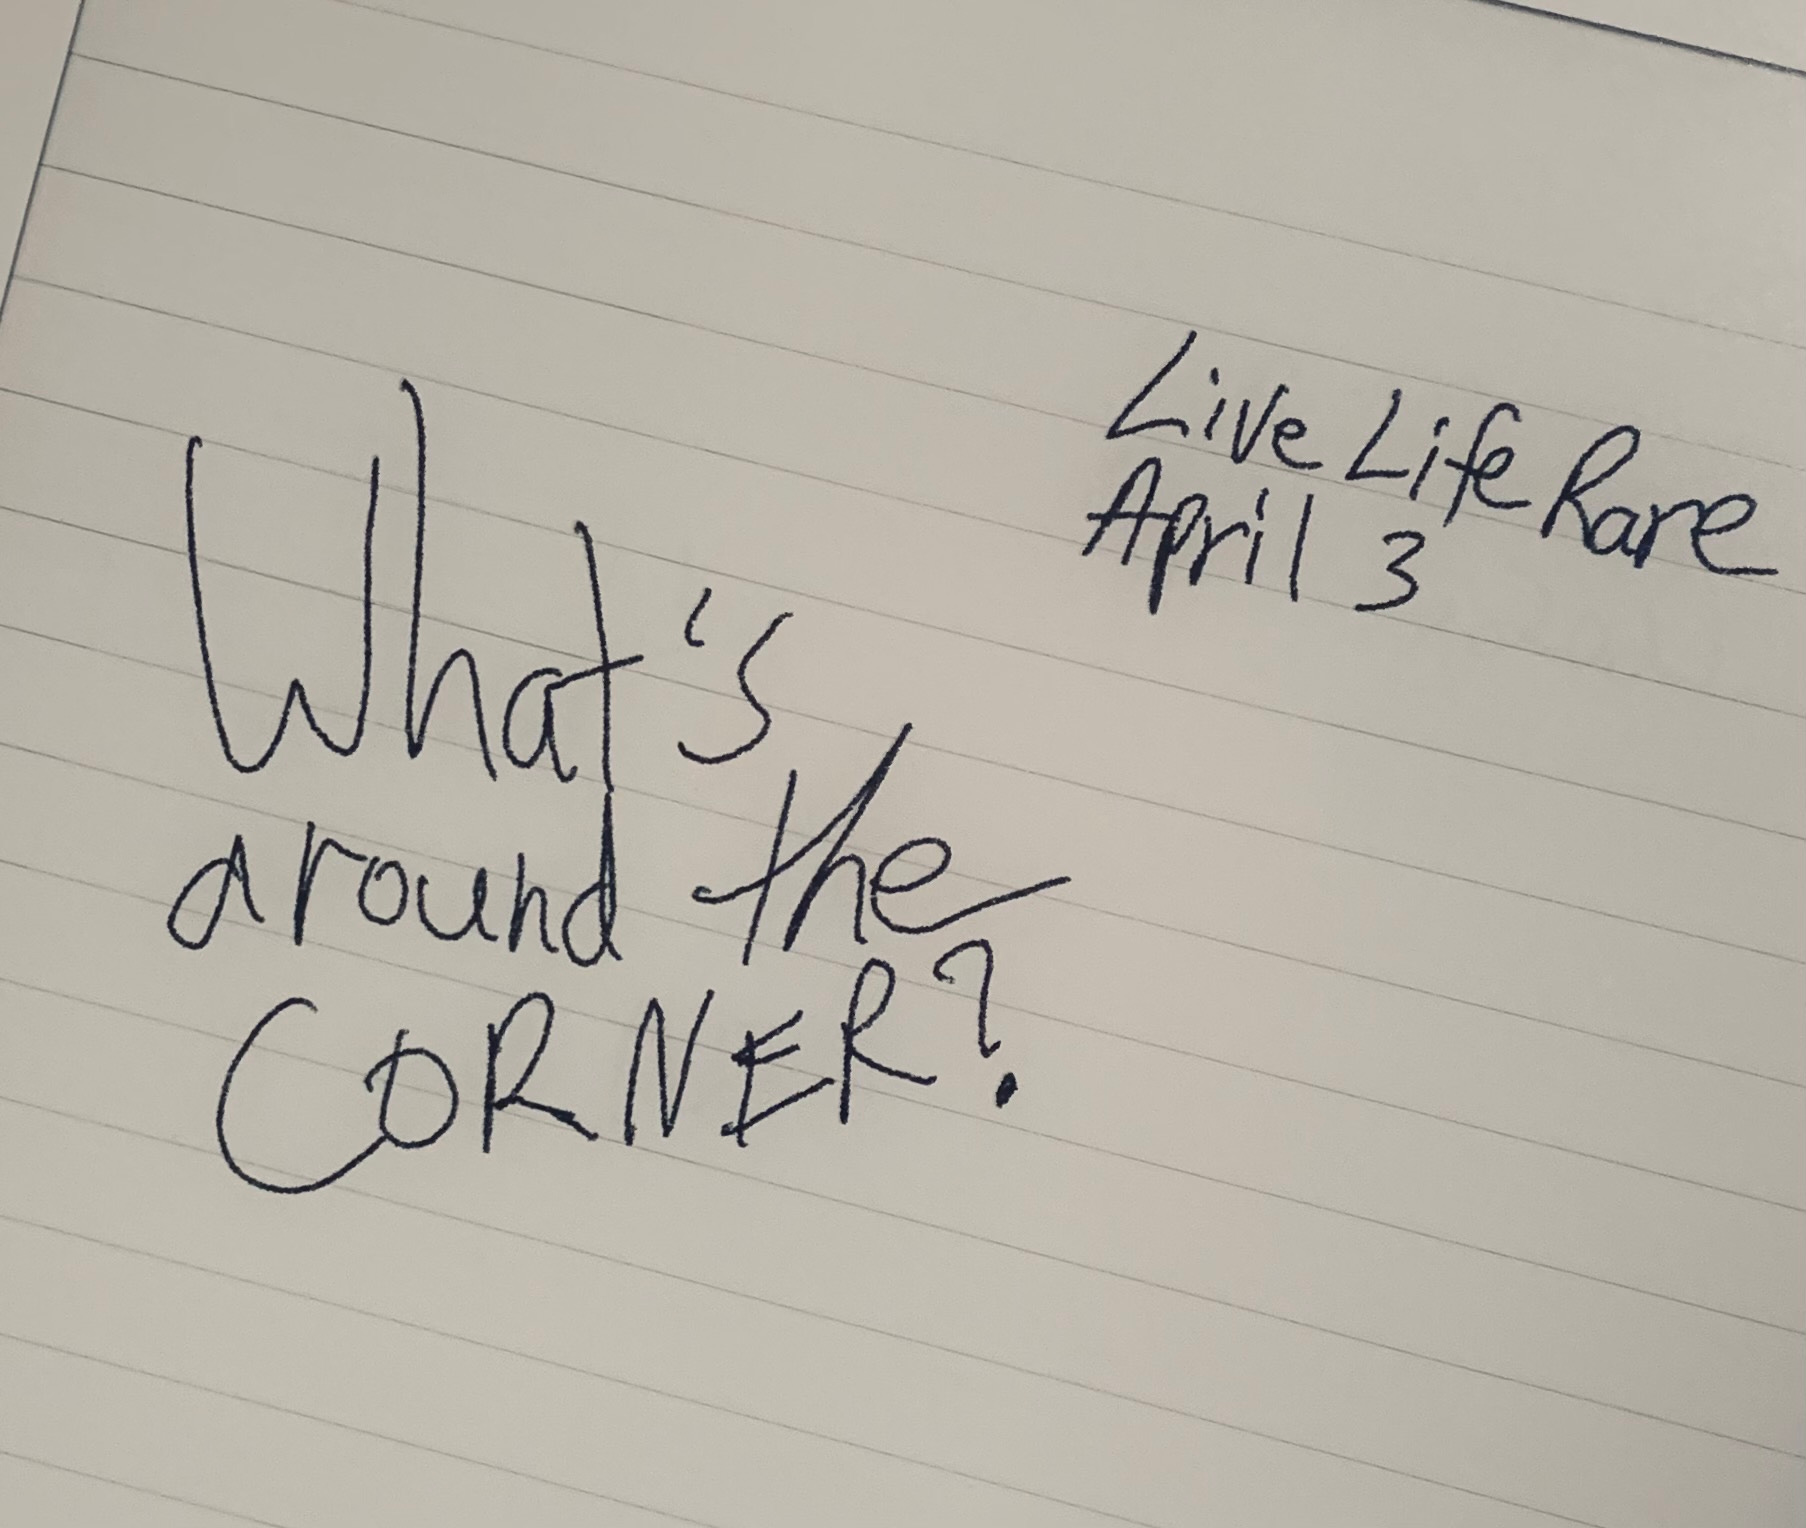 Live Life Rare
April 3
What's
around the
CORNER?